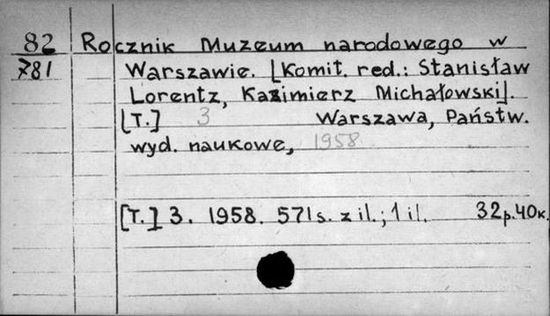 82 Rocznik Muzeum narodowego w
781 Warszawie. [Komit. red.: Stanisław
Lorentz, Kazimierz Michałowski].
[T.] 3 Warszawa, Państw.
wyd. naukowe, 1958
[T.] 3. 1958. 571 s. z il.; 1 il. 32p.40k.